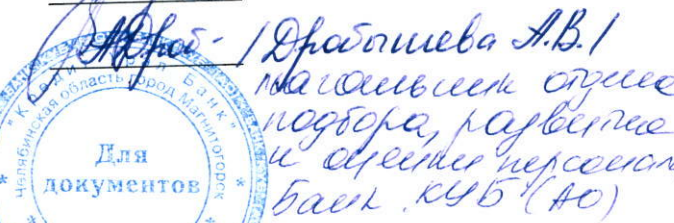 /Дробышева А.В./
начальник отдела
подбора, развития
и оценки персонал
Банк КУБ (АО)
Челябинская область город Магнитогорск
Для
документов